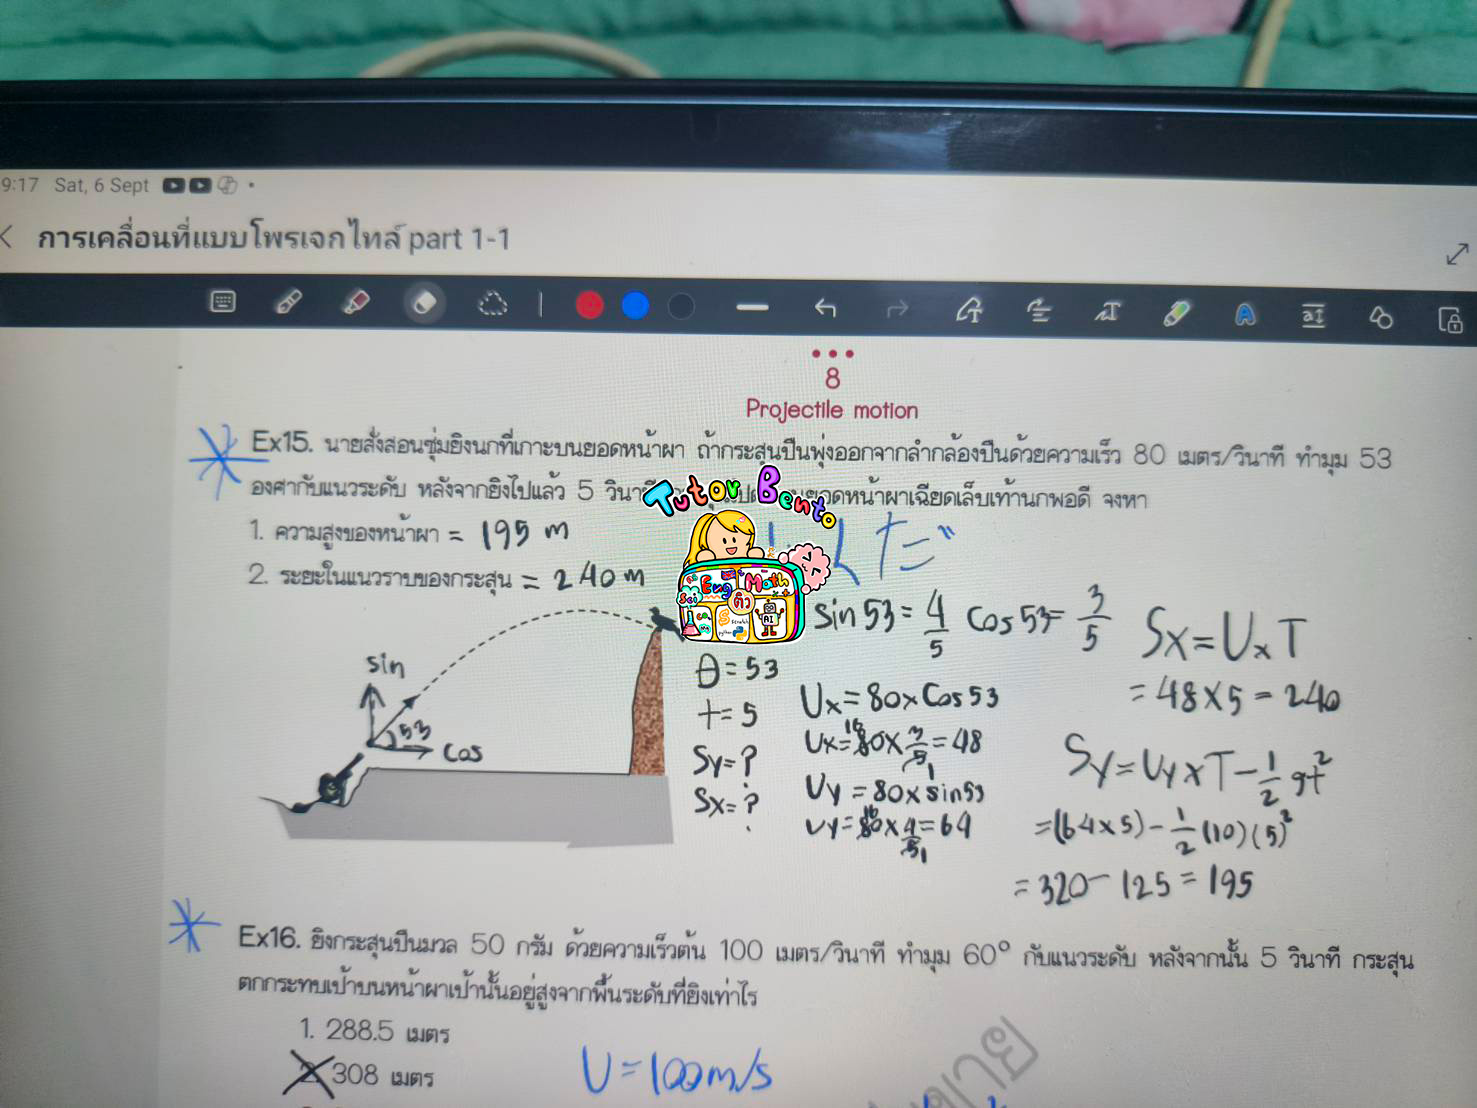 9:17 Sat, 6 Sept
การเคลื่อนที่แบบโพรเจกไทล์ part 1-1
8
Projectile motion
Ex15. นายสั่งสอนซุ่มยิงนกที่เกาะบนยอดหน้าผา ถ้ากระสุนปืนพุ่งออกจากลำกล้องปืนด้วยความเร็ว 80 เมตร/วินาที ทำมุม 53
องศากับแนวระดับ หลังจากยิงไปแล้ว 5 วินาที ยอดหน้าผาเฉียดเล็บเท้านกพอดี จงหา
1. ความสูงของหน้าผา = 195 m
2. ระยะในแนวราบของกระสุน = 240 m
Tutor Bento
Eng Math
Sci ติว AI
Scratch
python
t=
sin 53 = 4/5 cos 53 = 3/5
Sx = Ux T
= 48 x 5 = 240
sin
53
cos
θ = 53
t = 5
Sy = ?
Sx = ?
Ux = 80 x cos 53
Ux = 16 80 x 3/5 1 = 48
Uy = 80 x sin 53
Uy = 16 80 x 4/5 1 = 64
Sy = Uy x T - 1/2 gt²
= (64 x 5) - 1/2 (10)(5)²
= 320 - 125 = 195
Ex16. ยิงกระสุนปืนมวล 50 กรัม ด้วยความเร็วต้น 100 เมตร/วินาที ทำมุม 60° กับแนวระดับ หลังจากนั้น 5 วินาที กระสุน
ตกกระทบเป้าบนหน้าผาเป้านั้นอยู่สูงจากพื้นระดับที่ยิงเท่าไร
1. 288.5 เมตร
2. 308 เมตร
U = 100 m/s